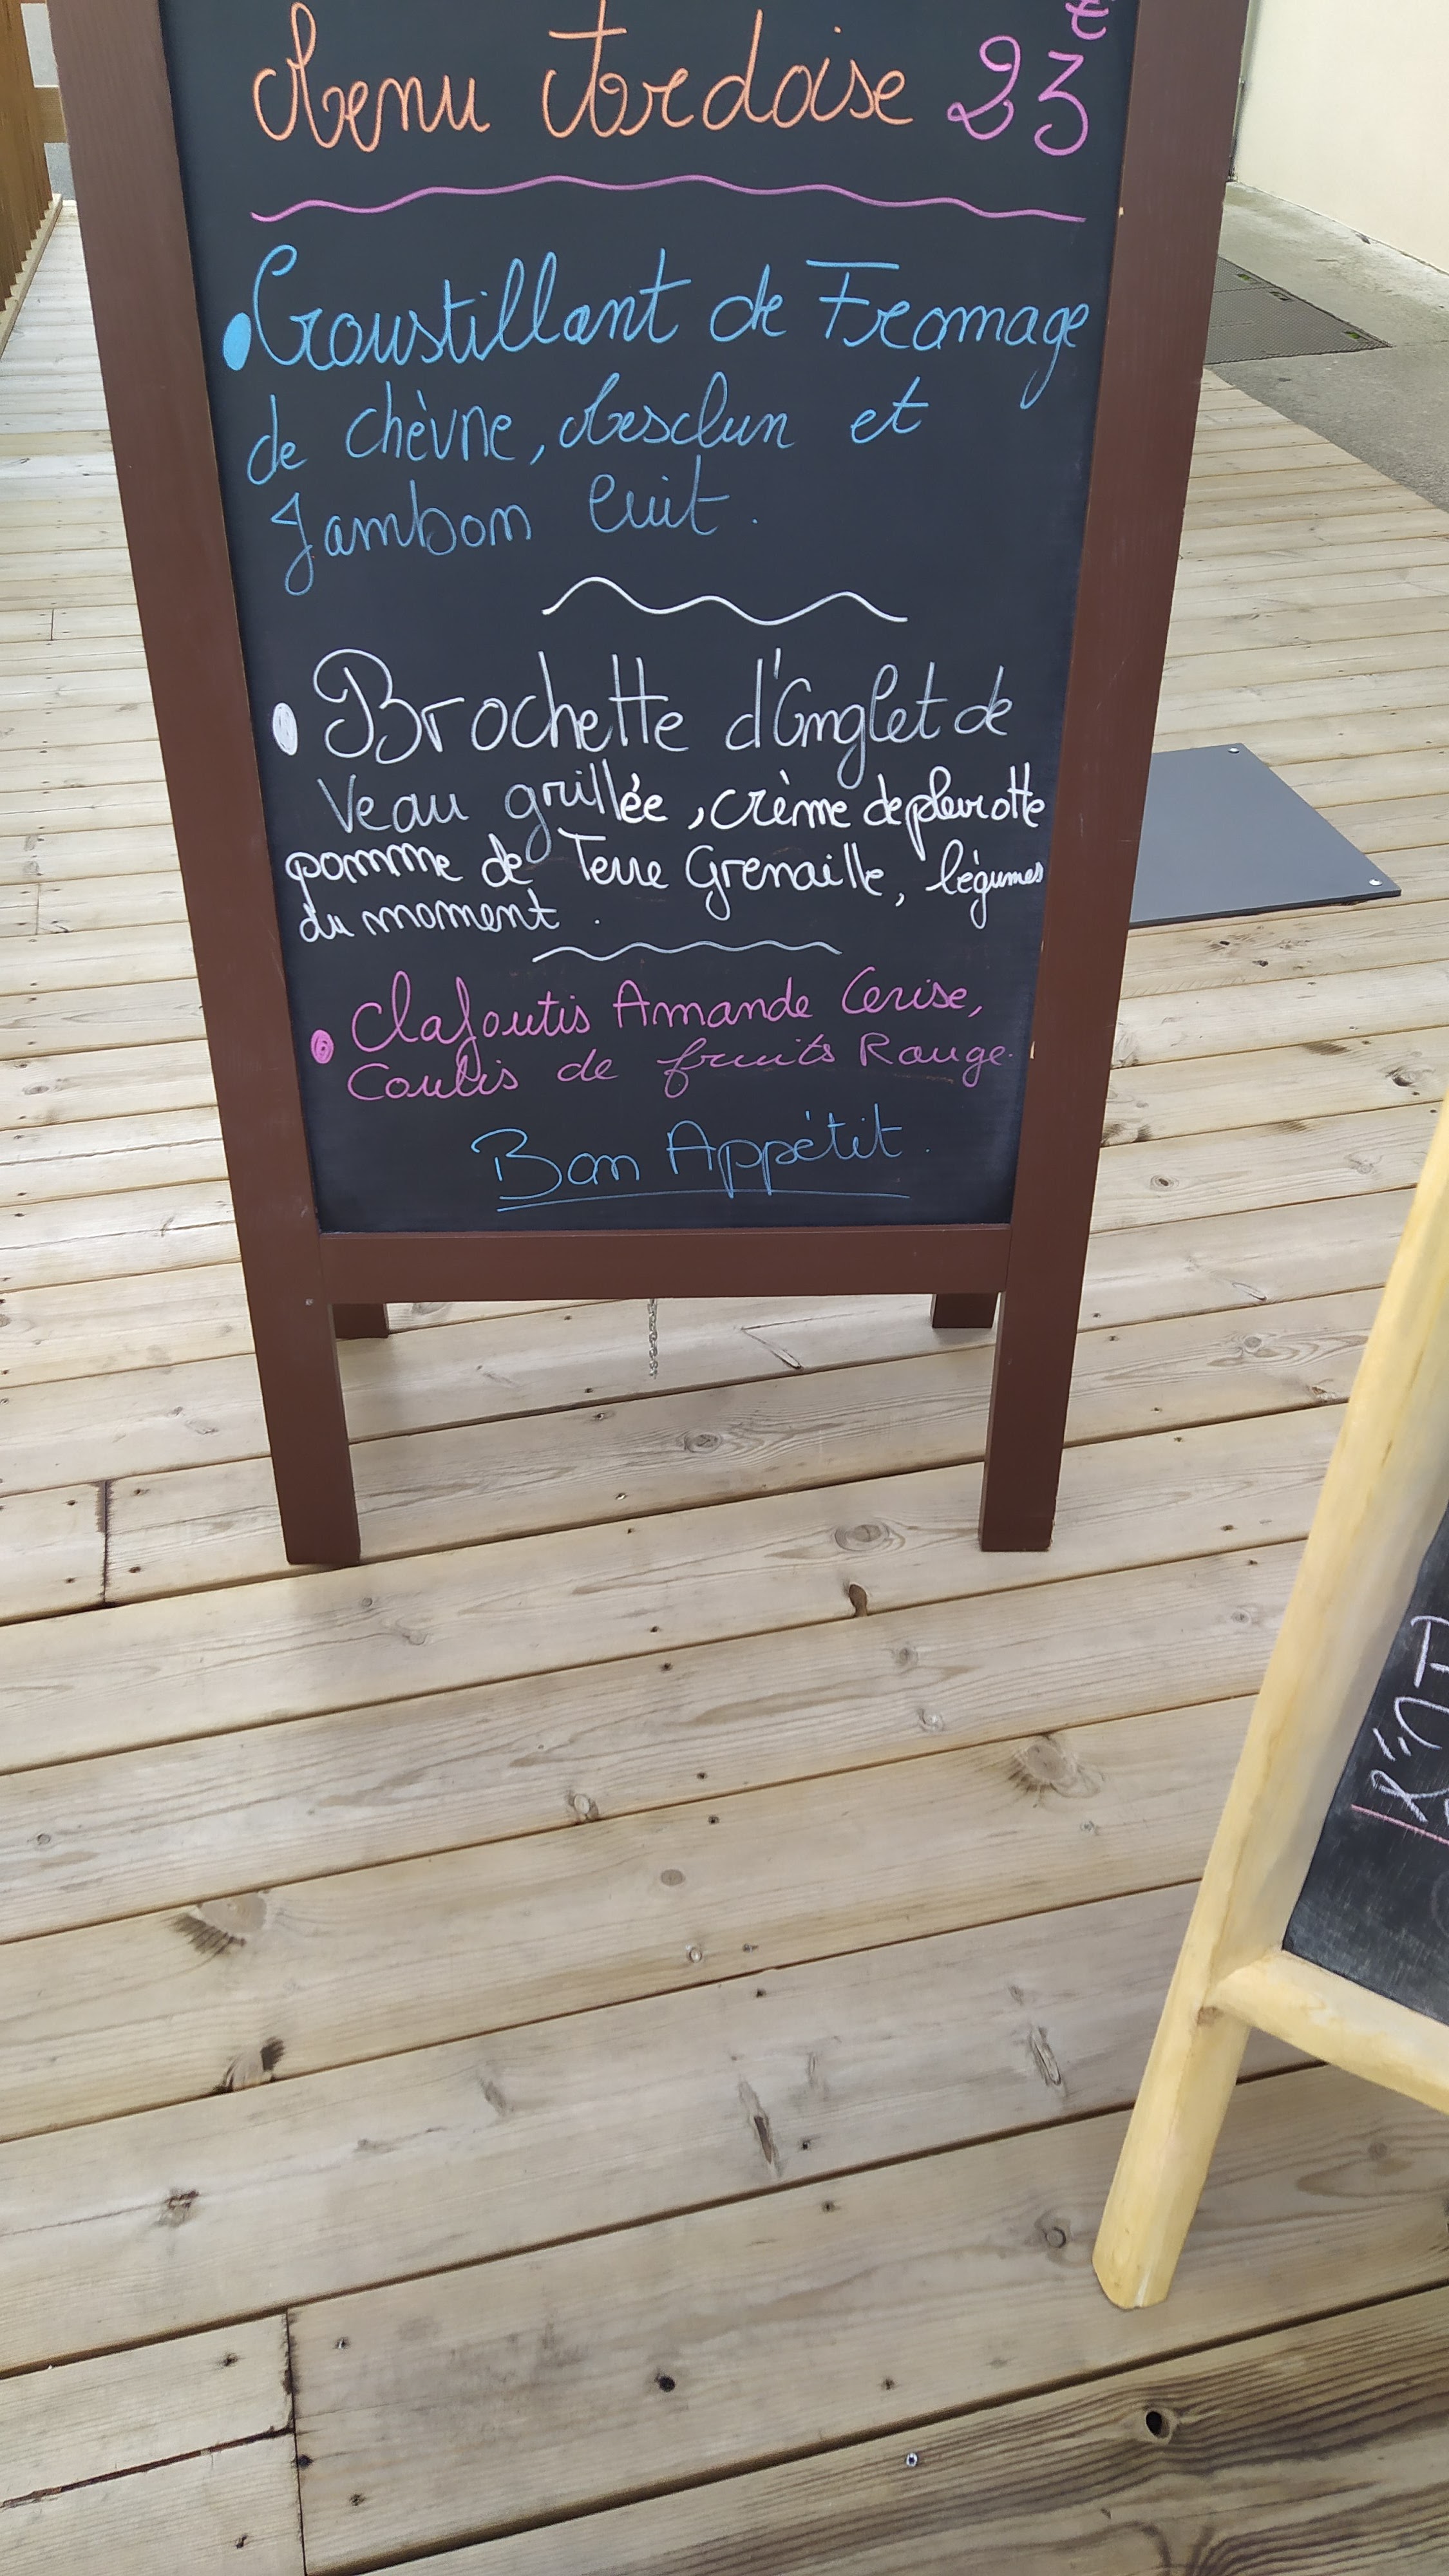 Menu Ardoise 23€
• Croustillant de Fromage
de chèvre, Mesclun et
Jambon Cuit.
• Brochette d'Onglet de
Veau grillée, crème de pleurotte
pomme de Terre Grenaille, légumes
du moment.
• Clafoutis Amande Cerise,
Coulis de fruits Rouge.
Bon Appétit.